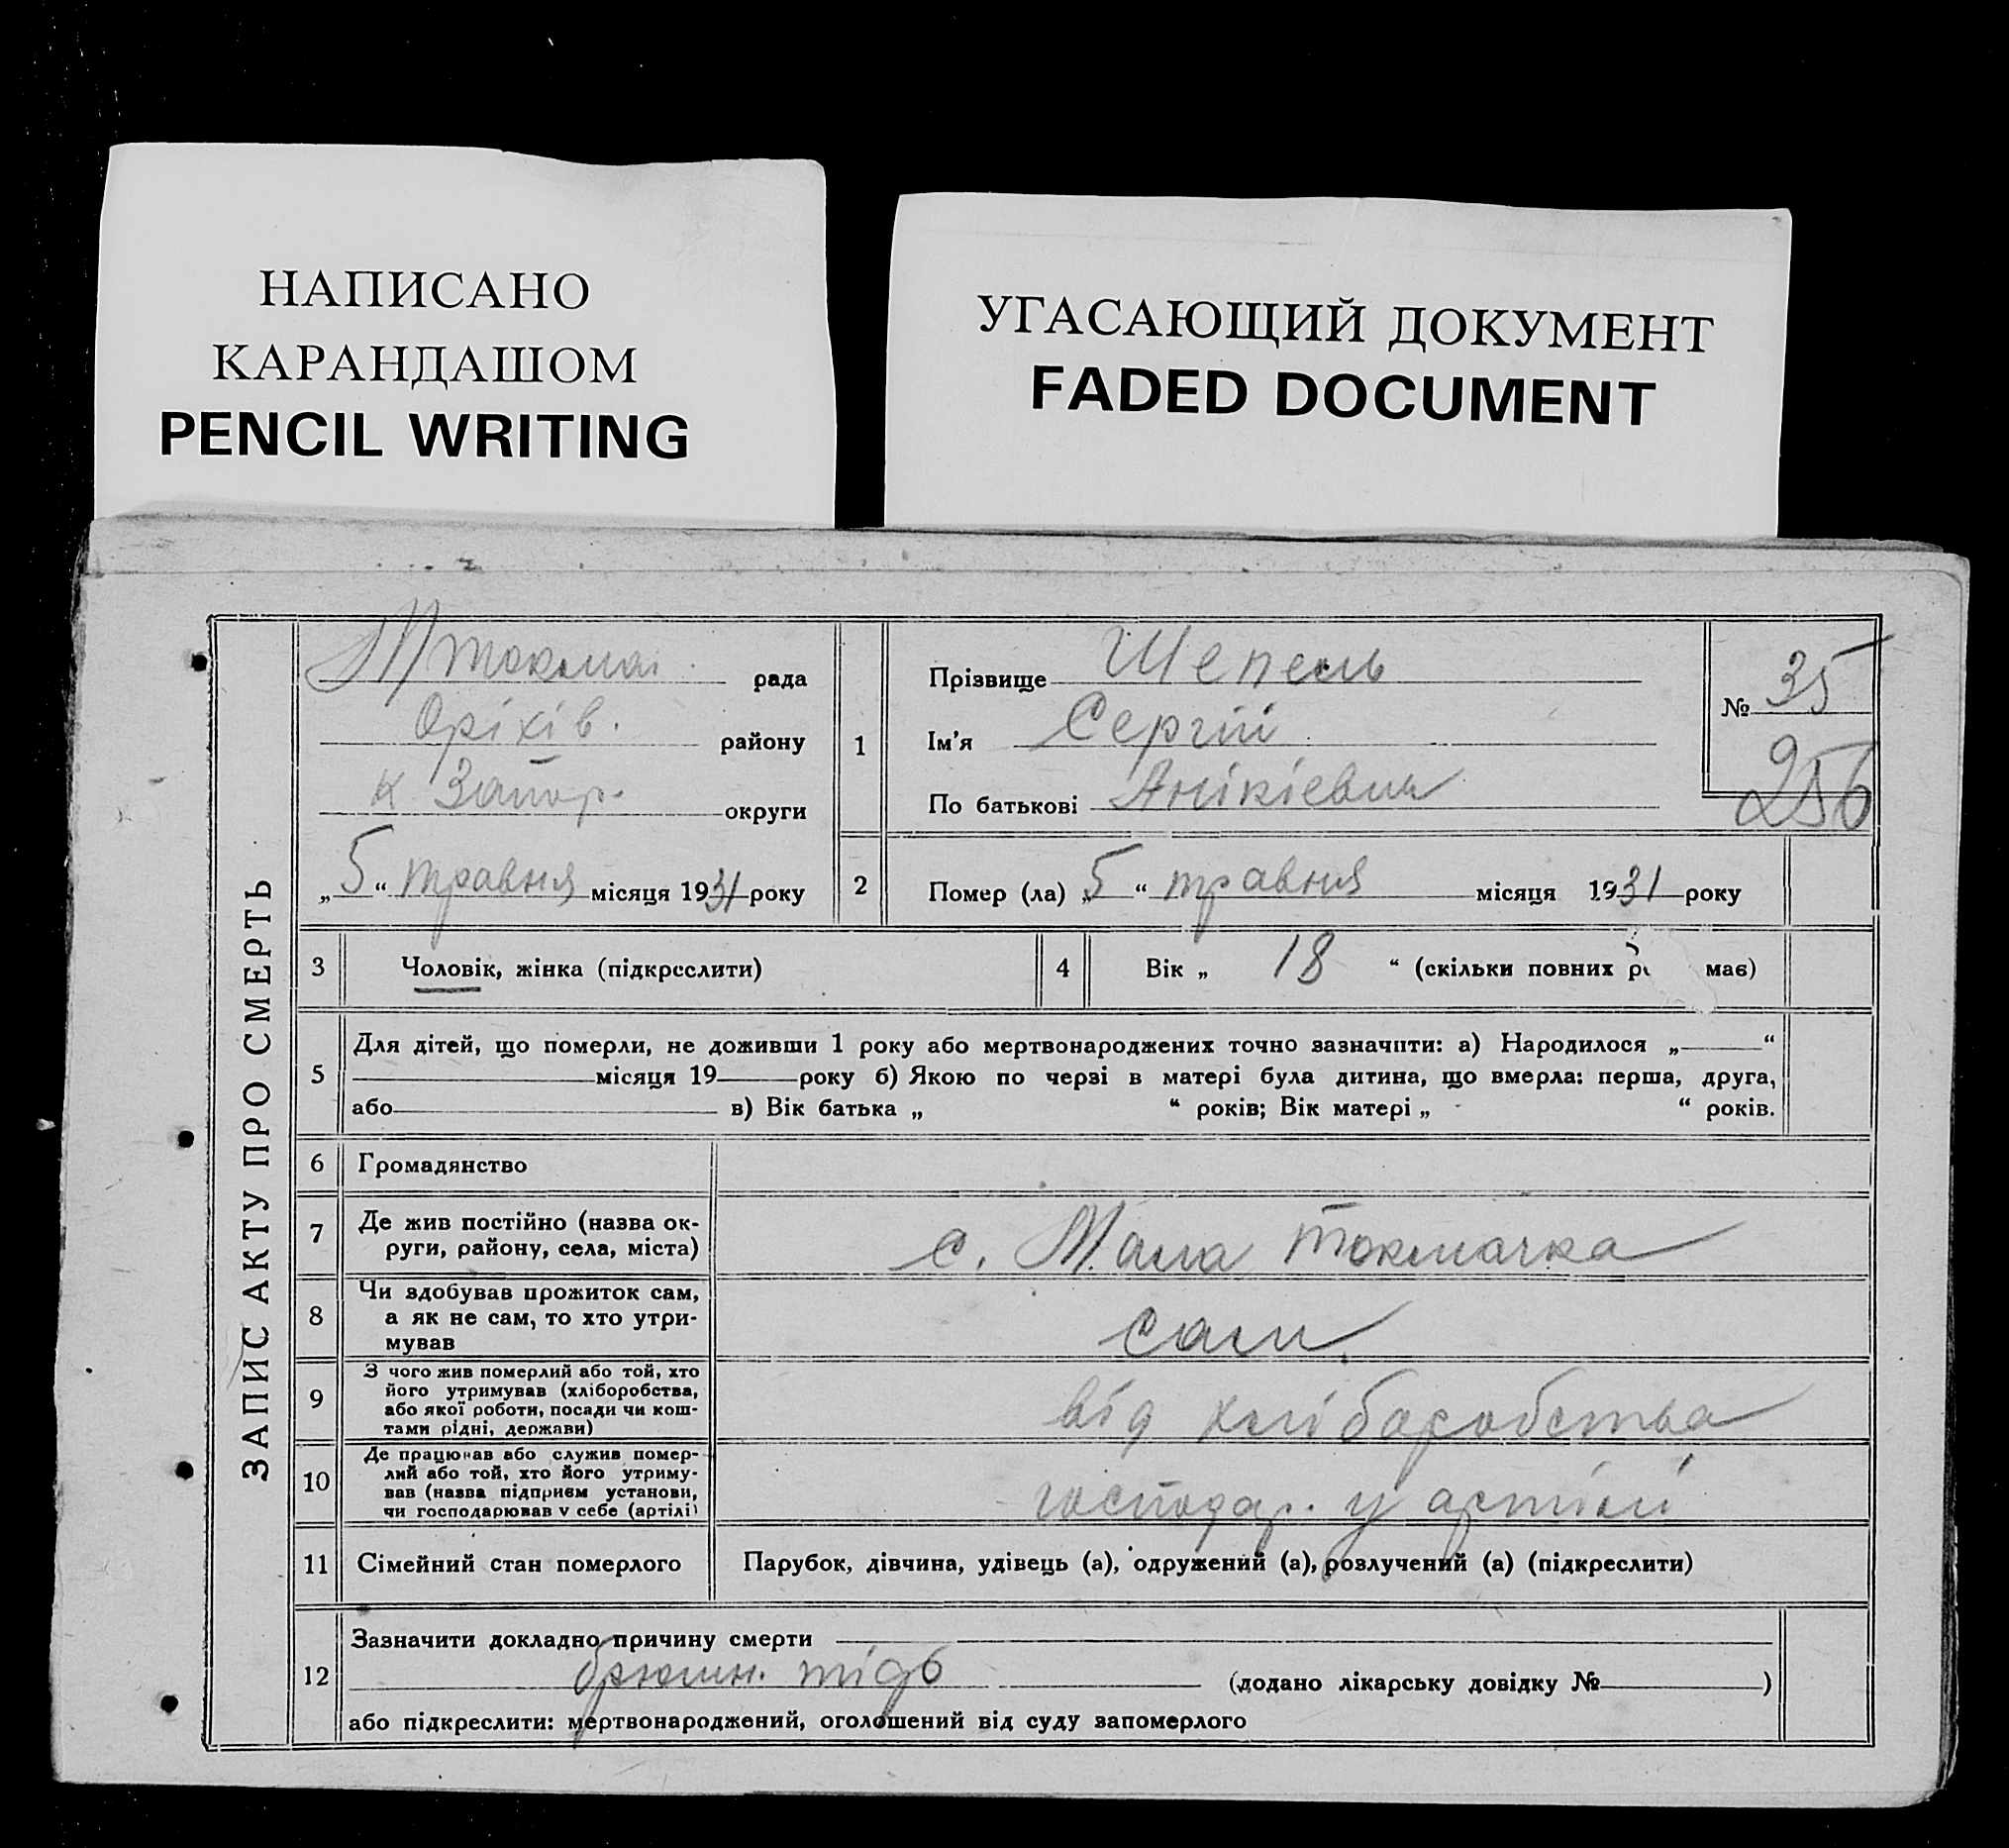 НАПИСАНО
КАРАНДАШОМ
PENCIL WRITING
УГАСАЮЩИЙ ДОКУМЕНТ
FADED DOCUMENT
ЗАПИС АКТУ ПРО СМЕРТЬ
М токмац. рада
Оріхів. району
к Запор. округи
„5“ травня місяця 1931 року
1
Прізвище Шепель
Ім'я Сергій
По батькові Анікієвич
№ 35
256
2 Помер (ла) „5“ травня місяця 1931 року
3 Чоловік, жінка (підкреслити)
4 Вік „ 18 “ (скільки повних має)
5 Для дітей, що померли, не доживши 1 року або мертвонароджених точно зазначити: а) Народилося „ “
місяця 19 року б) Якою по черзі в матері була дитина, що вмерла: перша, друга,
або в) Вік батька „ “ років; Вік матері „ “ років.
6 Громадянство
7 Де жив постійно (назва ок-
руги, району, села, міста)
с. Мала Токмачка
8 Чи здобував прожиток сам,
а як не сам, то хто утри-
мував
сам
9 З чого жив померлий або той, хто
його утримував (хліборобства,
або якої роботи, посади чи кош-
тами рідні, держави)
від хліборобства
10 Де працював або служив помер-
лий або той, хто його утриму-
вав (назва підприєм установи,
чи господарював у себе (артілі)
господар. у артілі
11 Сімейний стан померлого
Парубок, дівчина, удівець (а), одружений (а), розлучений (а) (підкреслити)
12 Зазначити докладно причину смерти
брюшн. тіфб (додано лікарську довідку № )
або підкреслити: мертвонароджений, оголошений від суду запомерлого